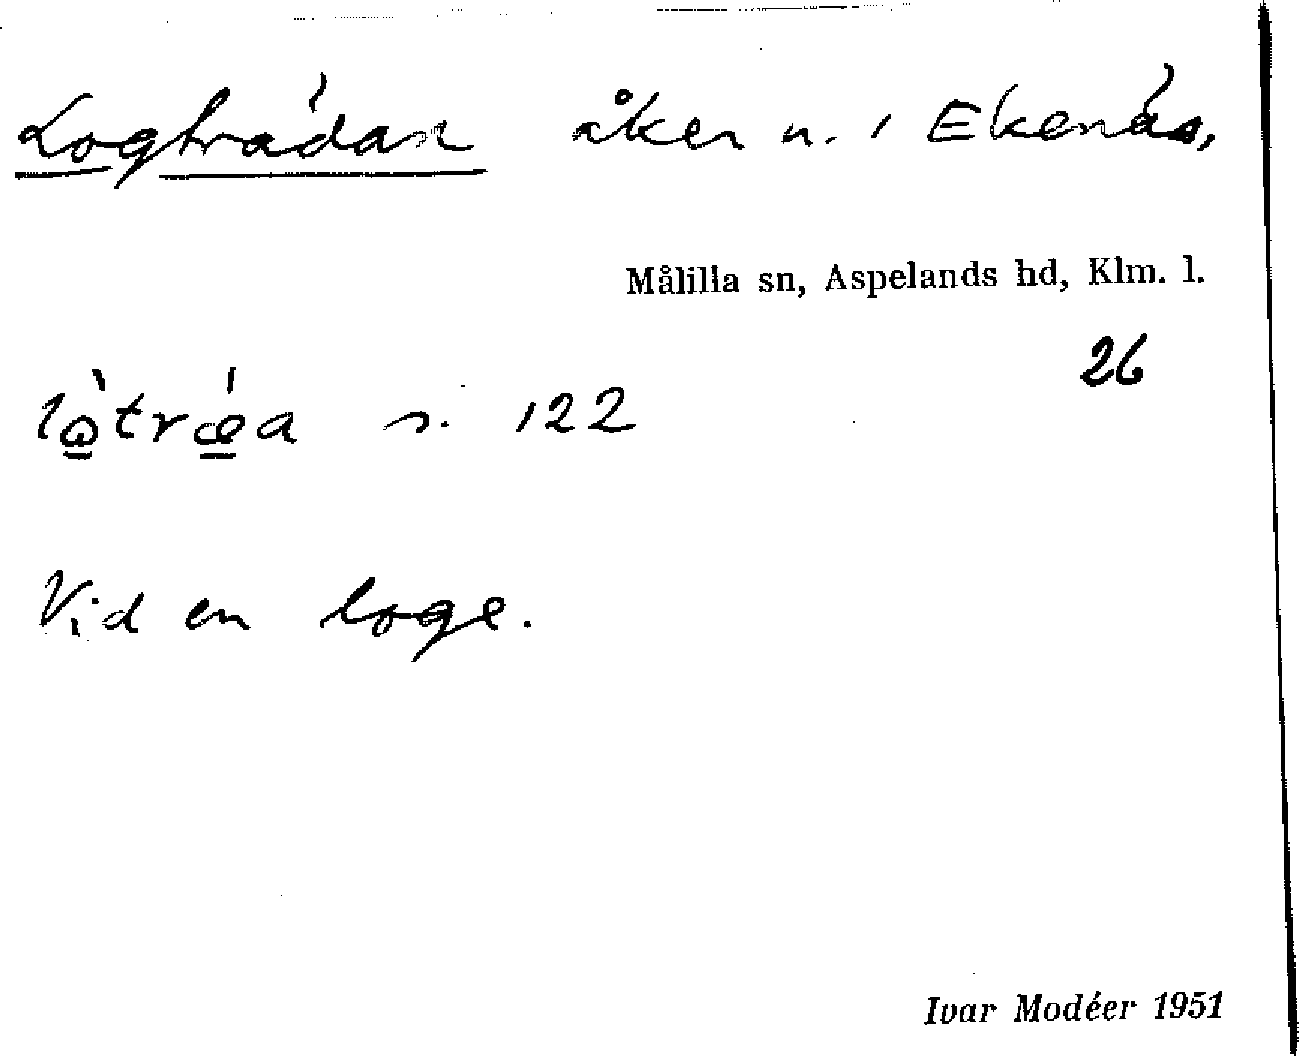 Logträdan åker n. i Ekenäs,
Målilla sn, Aspelands hd, Klm. l.
26
lò̱trǽ̱a s. 122
Vid en loge.
Ivar Modéer 1951